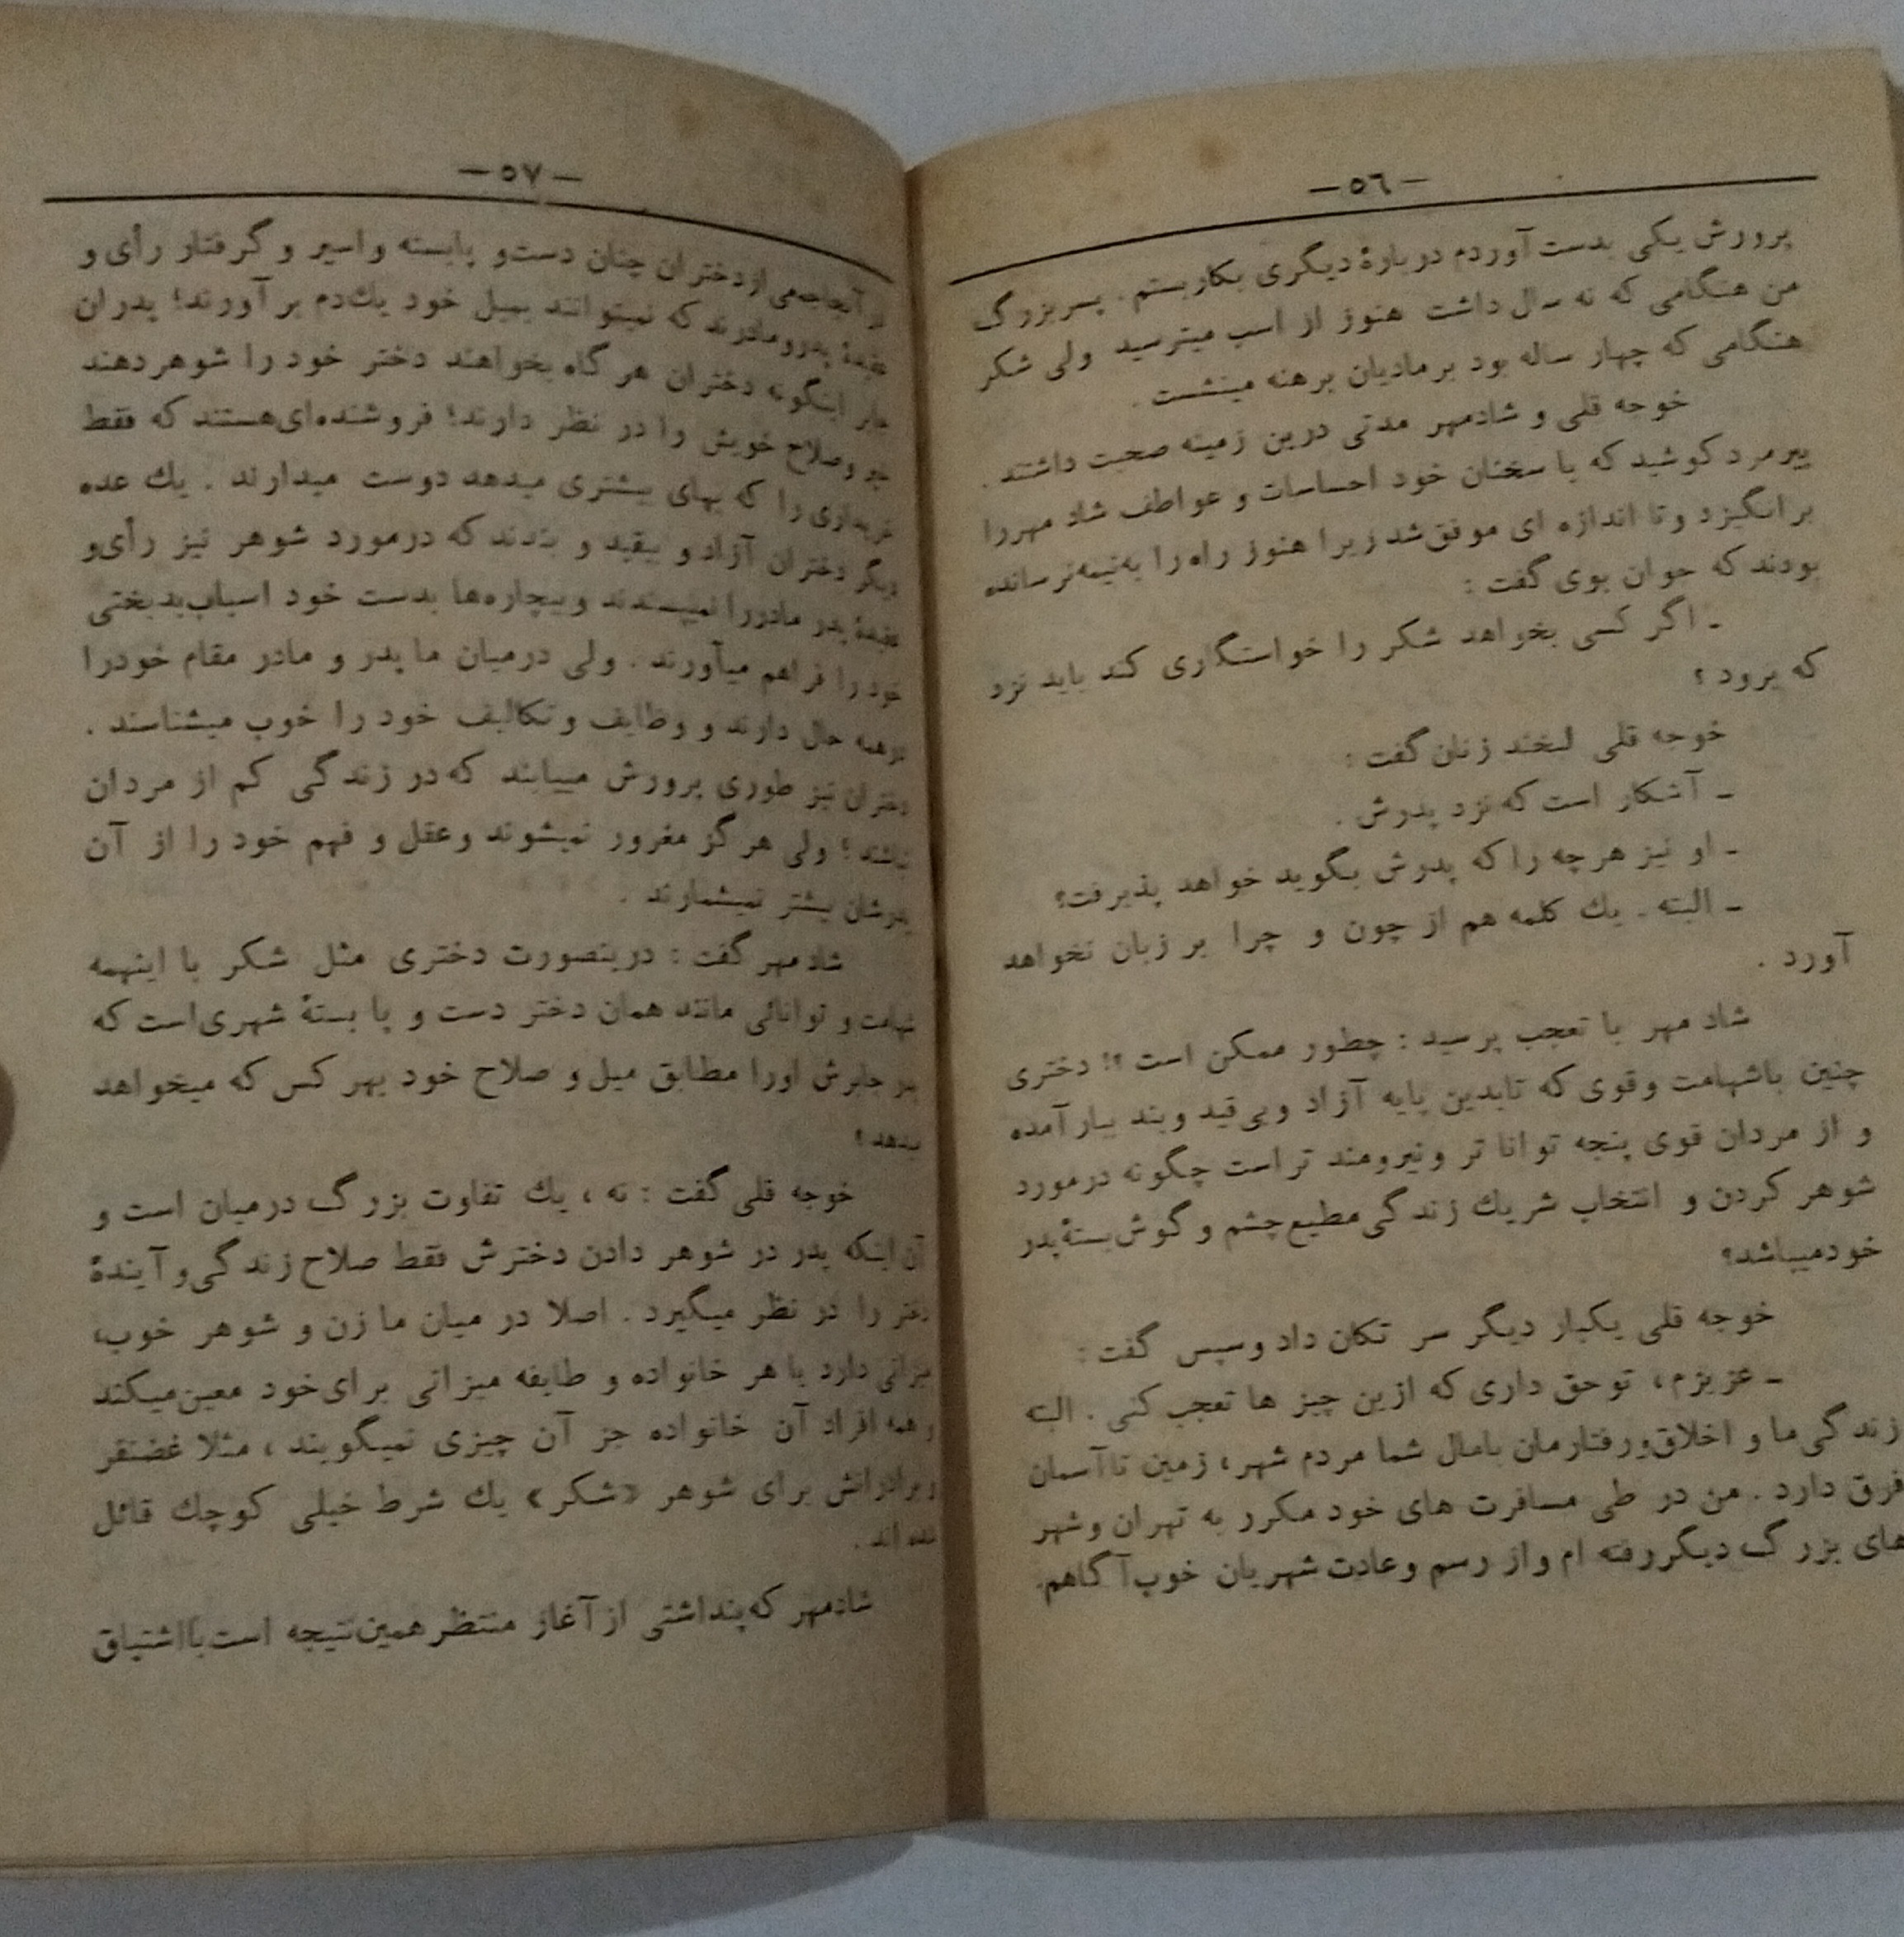 — ٥٦ —
پرورش یکی بدست آوردم دربارهٔ دیگری بکاربستم . پسر بزرگ
من هنگامی که نه سال داشت هنوز از اسب میترسید ولی شکر
هنگامی که چهار ساله بود بر مادیان برهنه مینشست .
خوجه قلی و شادمهر مدتی درین زمینه صحبت داشتند .
پیرمرد کوشید که با سخنان خود احساسات و عواطف شاد مهررا
برانگیزد وتا اندازه ای موفق شد زیرا هنوز راه را به نیمه نرسانده
بودند که جوان بوی گفت :
ـ اگر کسی بخواهد شکر را خواستگاری کند باید نزد
که برود ؟
خوجه قلی لبخند زنان گفت :
ـ آشکار است که نزد پدرش .
ـ او نیز هرچه را که پدرش بگوید خواهد پذیرفت؟
ـ البته . یك کلمه هم از چون و چرا بر زبان نخواهد
آورد .
شاد مهر با تعجب پرسید : چطور ممکن است ؟! دختری
چنین باشهامت وقوی که تابدین پایه آزاد وبی قید وبند ببار آمده
و از مردان قوی پنجه توانا تر ونیرومند تر است چگونه درمورد
شوهر کردن و انتخاب شریك زندگی مطیع چشم و گوش بستهٔ پدر
خودمیباشد؟
خوجه قلی یکبار دیگر سر تکان داد وسپس گفت :
ـ عزیزم، توحق داری که ازین چیز ها تعجب کنی . البته
زندگی ما و اخلاق ورفتارمان بامال شما مردم شهر، زمین تاآسمان
فرق دارد . من در طی مسافرت های خود مکرر به تهران وشهر
های بزرگ دیگررفته ام واز رسم وعادت شهریان خوب آگاهم .
— ٥٧ —
در آنجا جمعی از دختران چنان دست و پابسته واسیر و گرفتار رأی و
عقیدهٔ پدرومادرند که نمیتوانند بمیل خود یك دم بر آورند؛ پدران
جابر اینگونه دختران هر گاه بخواهند دختر خود را شوهردهند
وصلاح خویش را در نظر دارند؛ فروشنده ای هستند که فقط
خریداری را که بهای بیشتری میدهد دوست میدارند . یك عده
دیگر دختران آزاد و بیقید و بندند که درمورد شوهر نیز رأی و
عقیدهٔ پدر مادررا نمیپسندند وبیچاره ها بدست خود اسباب بدبختی
خود را فراهم میآورند . ولی درمیان ما پدر و مادر مقام خودرا
درهمه حال دارند و وظایف و تکالیف خود را خوب میشناسند .
دختران نیز طوری پرورش مییابند که در زندگی کم از مردان
نباشند؛ ولی هر گز مغرور نمیشوند وعقل و فهم خود را از آن
پدرشان بیشتر نمیشمارند .
شادمهر گفت : درینصورت دختری مثل شکر با اینهمه
شهامت و توانائی مانند همان دختر دست و پا بستهٔ شهری است که
پدر جابرش اورا مطابق میل و صلاح خود بهر کس که میخواهد
میدهد ؟
خوجه قلی گفت : نه ، یك تفاوت بزرگ درمیان است و
آن اینکه پدر در شوهر دادن دخترش فقط صلاح زندگی و آیندهٔ
دختر را در نظر میگیرد . اصلا در میان ما زن و شوهر خوب،
میزانی دارد یا هر خانواده و طایفه میزانی برای خود معین میکند
و همه افراد آن خانواده جز آن چیزی نمیگویند ، مثلا غضنفر
و برادرانش برای شوهر «شکر» یك شرط خیلی کوچك قائل
شده اند .
شادمهر که پنداشتی از آغاز منتظر همین نتیجه است با اشتیاق